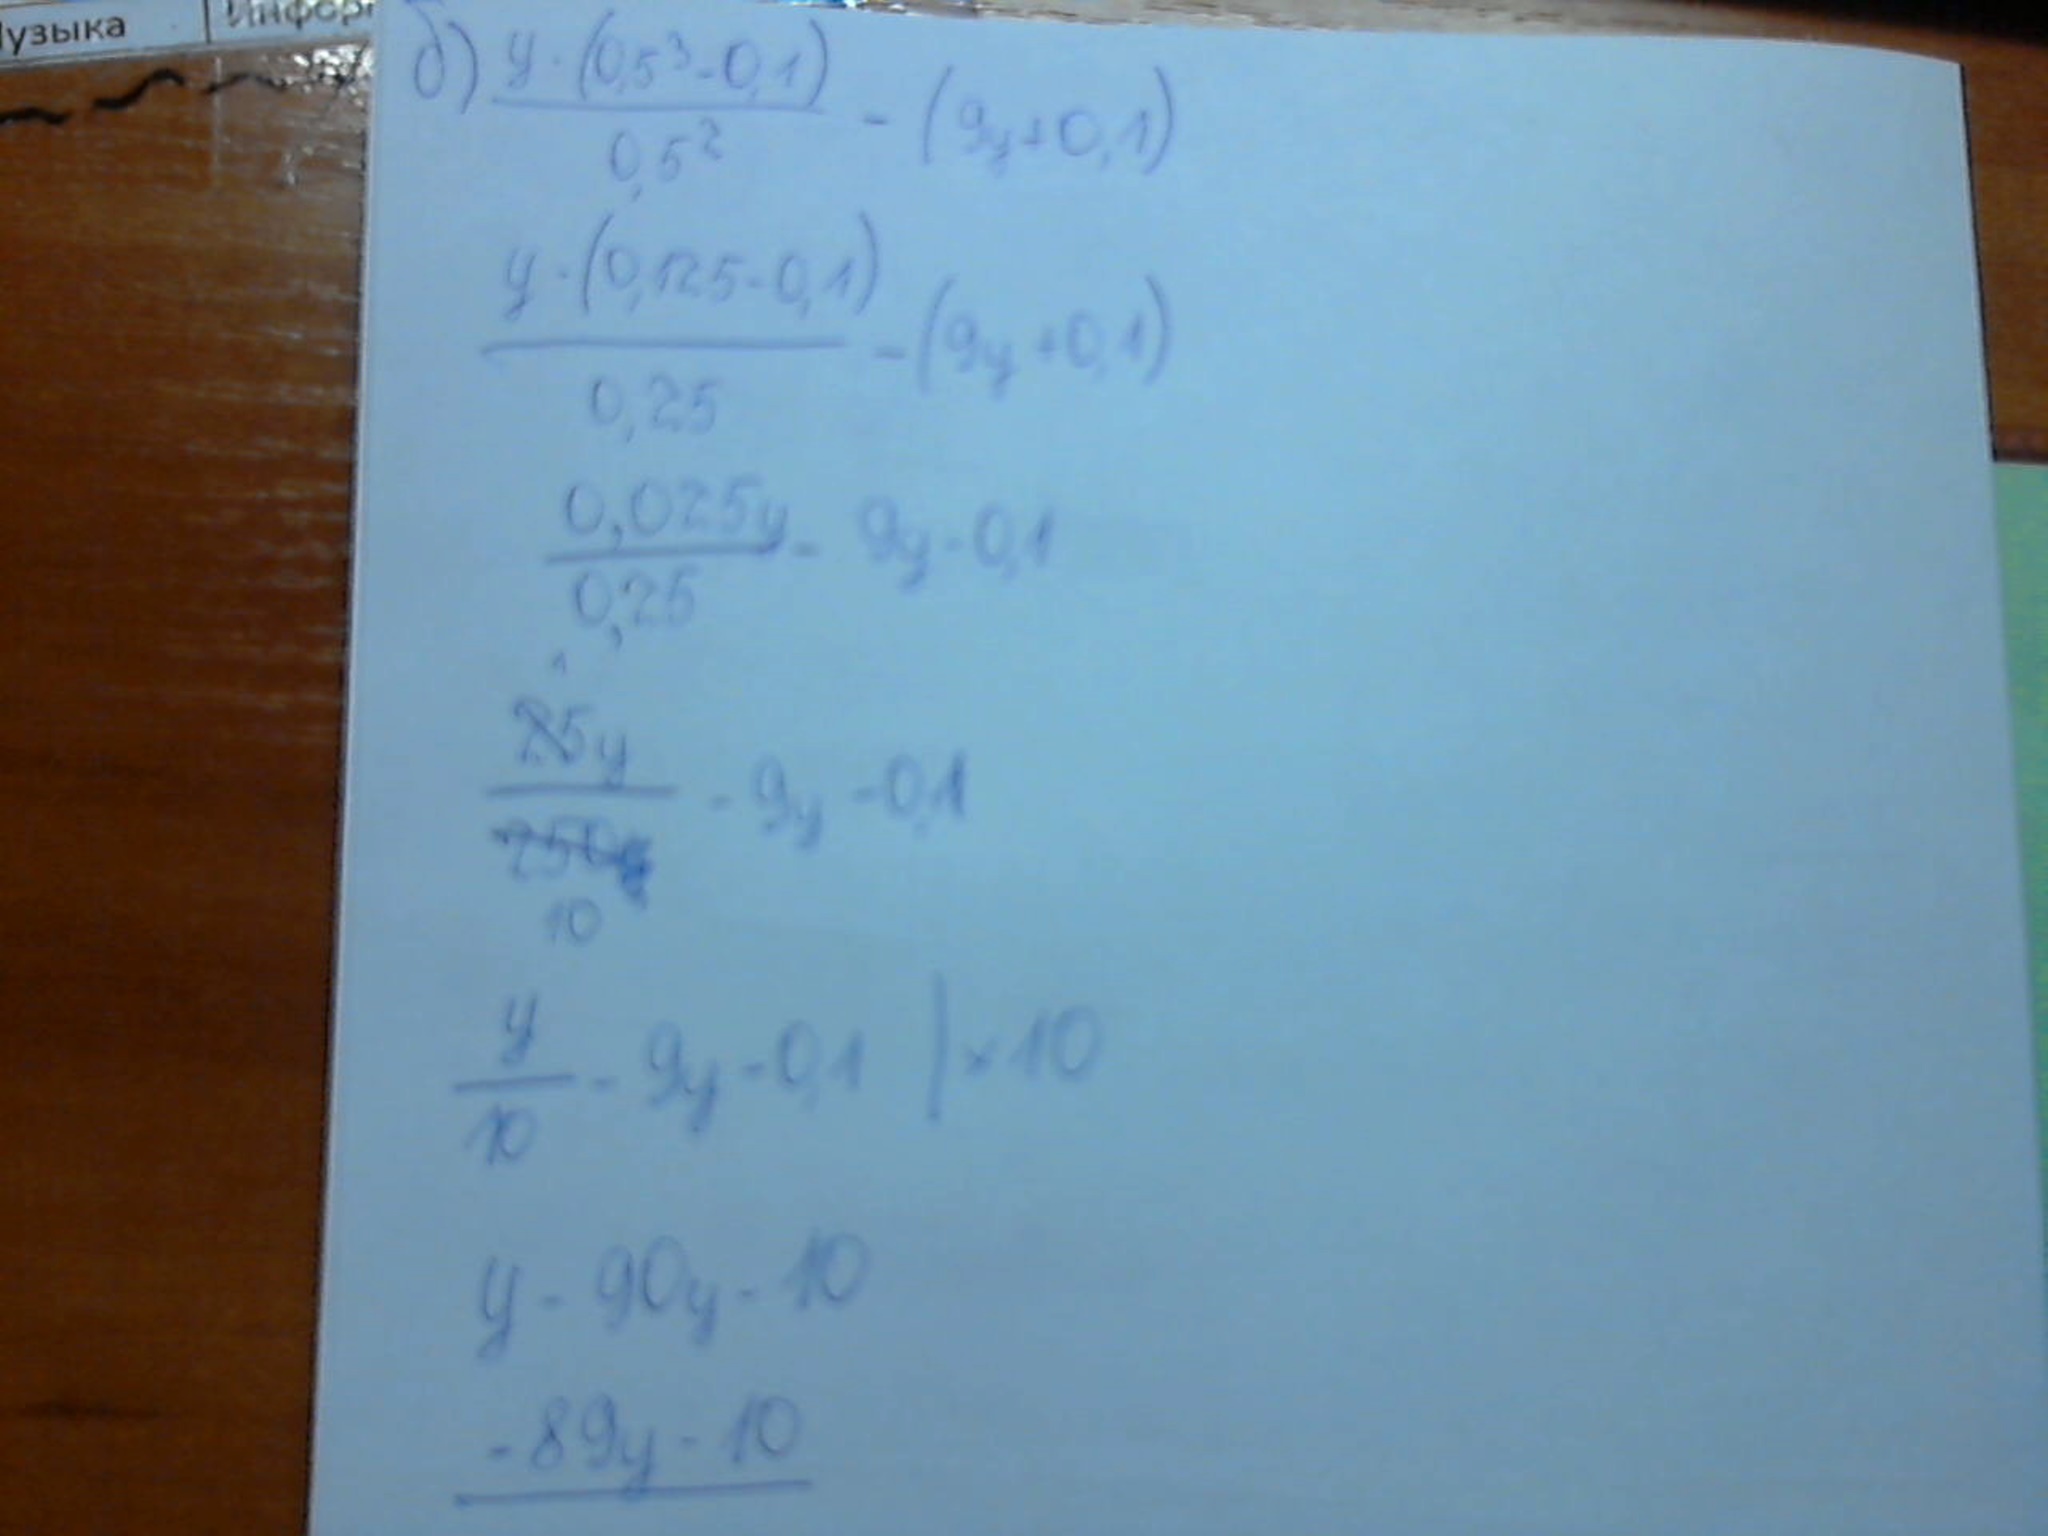 узыка Информ
б) y · (0,5³ - 0,1) / 0,5² - (9y + 0,1)
y · (0,125 - 0,1) / 0,25 - (9y + 0,1)
0,025y / 0,25 - 9y - 0,1
1
25y / 250 - 9y - 0,1
10
y / 10 - 9y - 0,1 | × 10
y - 90y - 10
- 89y - 10